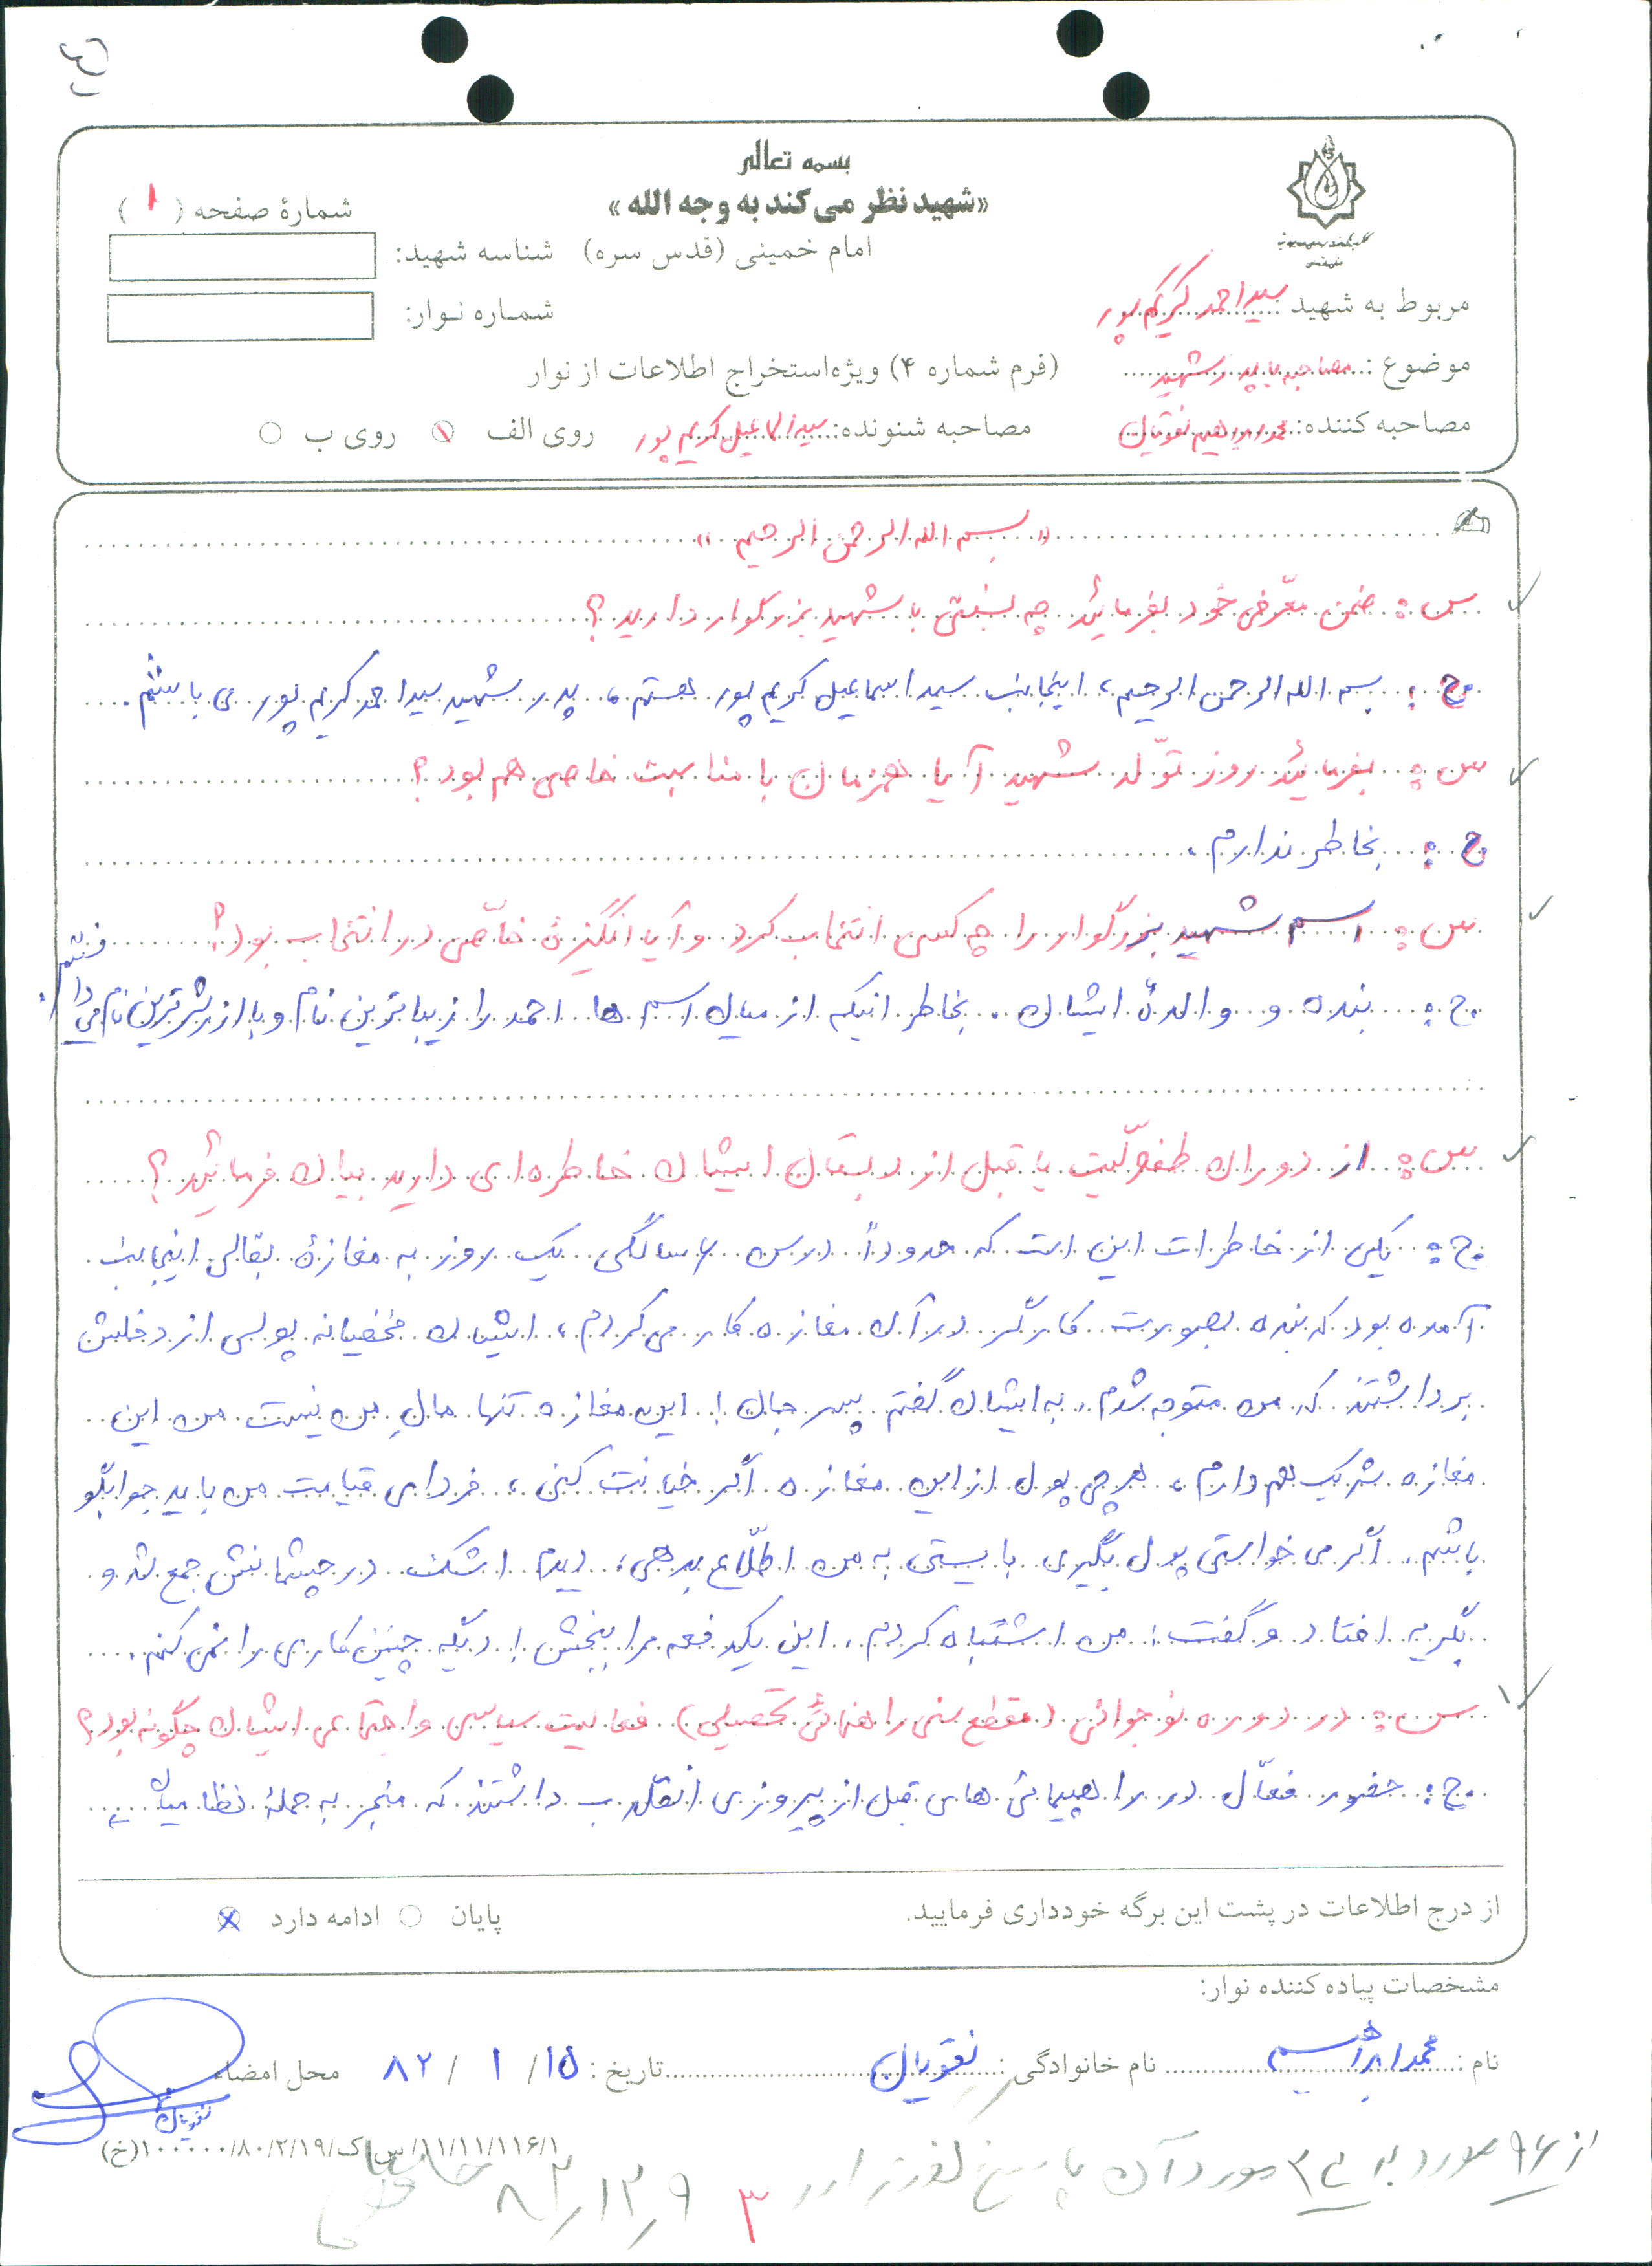 بسمه تعالی
«شهید نظر می‌کند به وجه الله»
شمارهٔ صفحه (۱)
امام خمینی (قدس سره)
شناسه شهید:
مربوط به شهید: سید احمد کریم پور
شماره نوار:
موضوع: مصاحبه با پدر شهید
(فرم شماره ۴) ویژه استخراج اطلاعات از نوار
مصاحبه کننده: محمد ابراهیم نقویان
مصاحبه شنونده: سید اسماعیل کریم پور
روی الف
روی ب
«بسم الله الرحمن الرحیم»
س: ضمن معّرفی خود بفرمائید چه نسبتی با شهید بزرگوار دارید؟
ج: بسم الله الرحمن الرحیم، اینجانب سید اسماعیل کریم پور هستم، پدر شهید سید احمد کریم پور می باشم.
س: بفرمائید روز تولّد شهید آیا همزمان با مناسبت خاصی هم بود؟
ج: بخاطر ندارم.
س: اسم شهید بزرگوار را چه کسی انتخاب کرد و آیا انگیزهٔ خاّصی در انتخاب بود؟
ج: بنده و والدهٔ ایشان. بخاطر اینکه از میان اسم ها احمد را زیباترین نام و با ارزش ترین نام می دانستم.
س: از دوران طفولّیت یا قبل از دبستان ایشان خاطره ای دارید بیان فرمائید؟
ج: یکی از خاطرات این است که حدوداً در سن ۶ سالگی یک روز به مغازهٔ بقالی اینجانب
آمده بود که بنده بصورت کارگر در آن مغازه کار می کردم، ایشان مخفیانه پولی از دخلش
برداشتند که من متوجه شدم، به ایشان گفتم پسر جان! این مغازه تنها مالِ من نیست من این
مغازه شریک هم دارم، هر چی پول از این مغازه اگر خیانت کنی، فردای قیامت من باید جوابگو
باشم. اگر می خواستی پول بگیری بایستی به من اطلّاع بدهی، دیدم اشک در چشمانش جمع شد و
بگریه افتاد و گفت: من اشتباه کردم، این یکدفعه مرا ببخش! دیگه چنین کاری را نمی کنم.
س: در دوره نوجوانی (مقطع سنی راهنمائی تحصیلی) فعالیت سیاسی و اجتماعی ایشان چگونه بود؟
ج: حضور فعّال در راهپیمائی های قبل از پیروزی انقلاب داشتند که منجر به حملهٔ نظامیان
از درج اطلاعات در پشت این برگه خودداری فرمایید.
پایان
ادامه دارد
مشخصات پیاده کننده نوار:
نام: محمد ابراهیم
نام خانوادگی: نقویان
تاریخ: ۱۵/ ۱ / ۸۲
محل امضاء
نقویان
۱۱/۱۱/۱۱۶/۱/س ک/۸۰/۲/۱۹/۱۰۰۰۰۰(خ)
۳